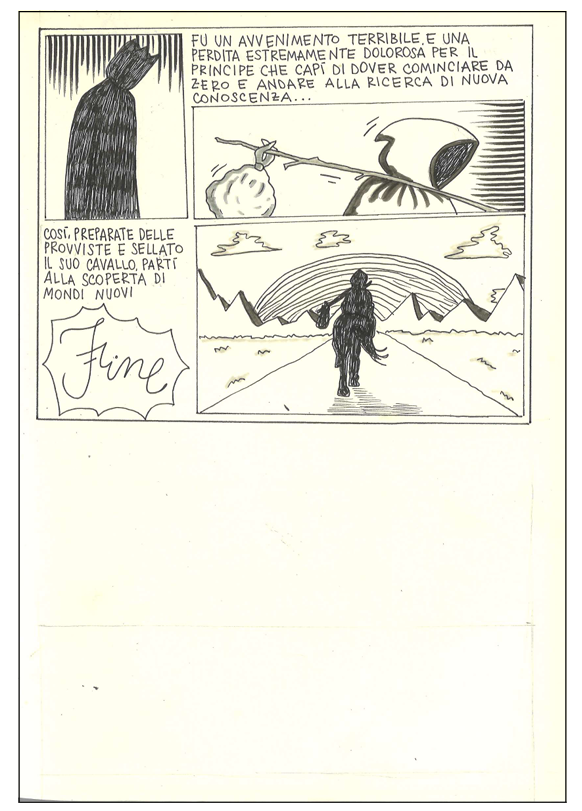 FU UN AVVENIMENTO TERRIBILE, E UNA
PERDITA ESTREMAMENTE DOLOROSA PER IL
PRINCIPE CHE CAPÍ DI DOVER COMINCIARE DA
ZERO E ANDARE ALLA RICERCA DI NUOVA
CONOSCENZA...
COSÍ, PREPARATE DELLE
PROVVISTE E SELLATO
IL SUO CAVALLO, PARTÍ
ALLA SCOPERTA DI
MONDI NUOVI
Fine